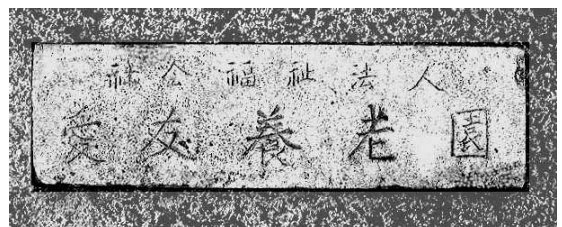 社会福祉法人
愛友養老園